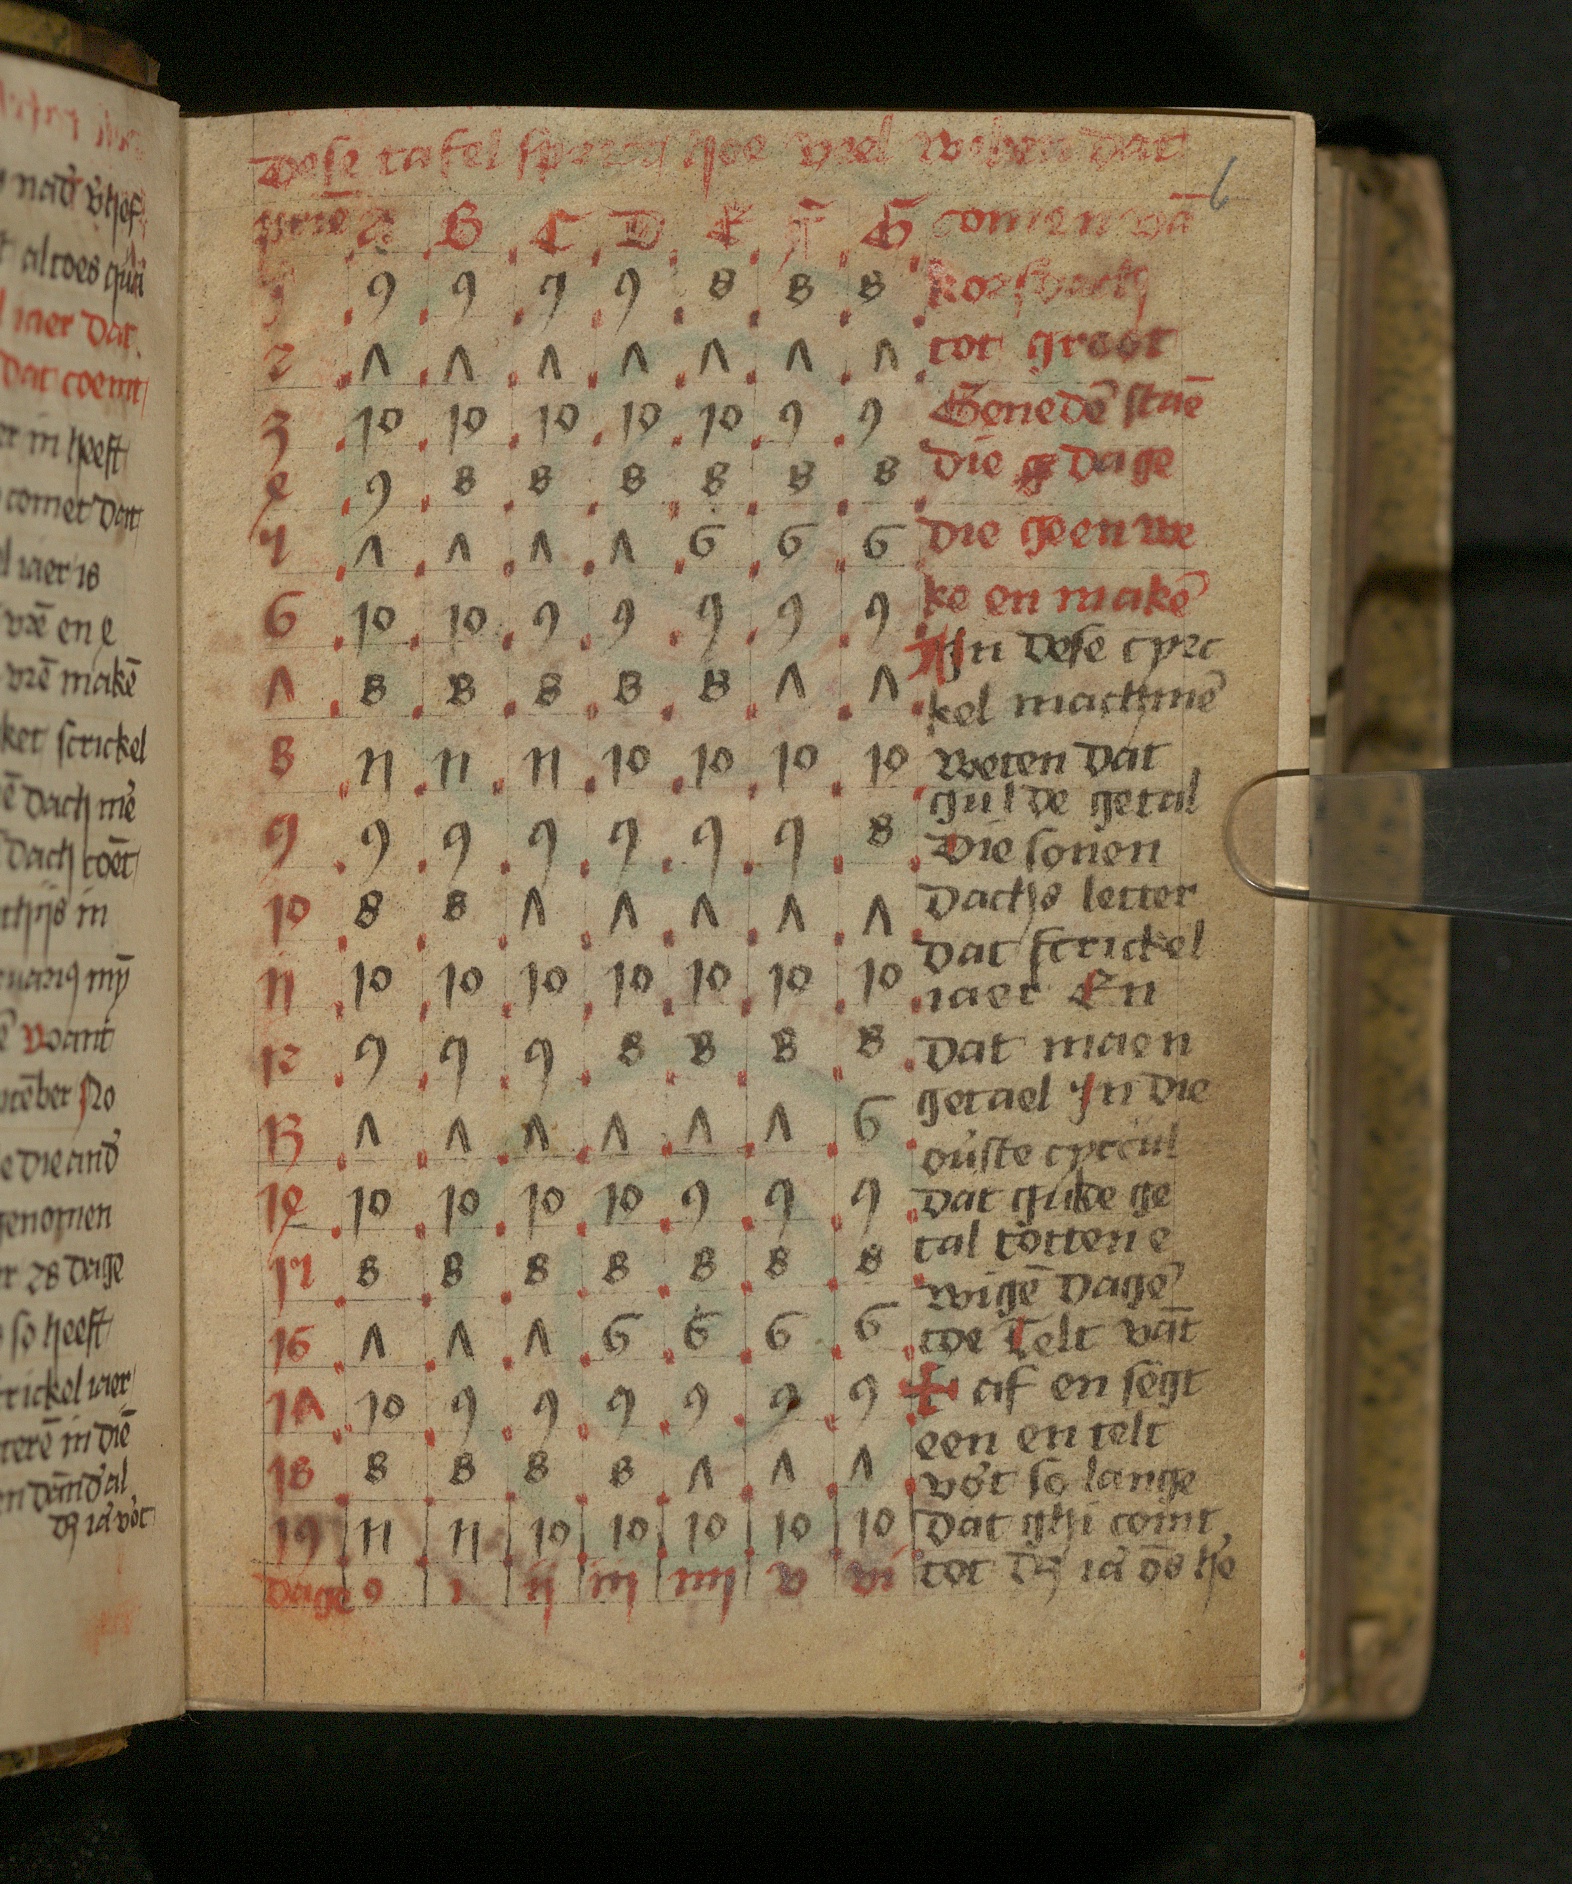 Dese tafel hoe veel weken dat
A B C D E F G comen vā
1 9 9 9 9 8 8 8 korsdach
2 7 7 7 7 7 7 7 tot groot
3 10 10 10 10 10 9 9 Benedē staē
4 9 8 8 8 8 8 8 die dage
5 7 7 7 7 6 6 6 die geen we
6 10 10 9 9 9 9 9 ke en makē
In dese cyrc
7 8 8 8 8 8 7 7 kel machmē
8 11 11 11 10 10 10 10 weten dat
gulde getal
9 9 9 9 9 9 9 8 Die sonen
10 8 8 7 7 7 7 7 dachs letter
dat scrickel
11 10 10 10 10 10 10 10 iaer En
12 9 9 9 8 8 8 8 dat maen
getael In die
13 7 7 7 7 7 7 6 ouste cyrcul
14 10 10 10 10 9 9 9 dat gulde ge
tal totten e
15 8 8 8 8 8 8 8 wigē dagē
16 7 7 7 6 6 6 6 toe Telt vāt
17 10 9 9 9 9 9 9 + af en segt
een en telt
18 8 8 8 8 7 7 7 vort so lange
19 11 11 10 10 10 10 10 dat ghi comt
dage 0 i ij iij iiij v vi tot
al toes
iaer dat
dat coemt
in heeft
comet dat
iaer is
vrē en e
vrē makē
scrickel
dach mē
dach coēt
in
mȳ
want
No
die and
genomen
28 dage
so heeft
iaer
in diē